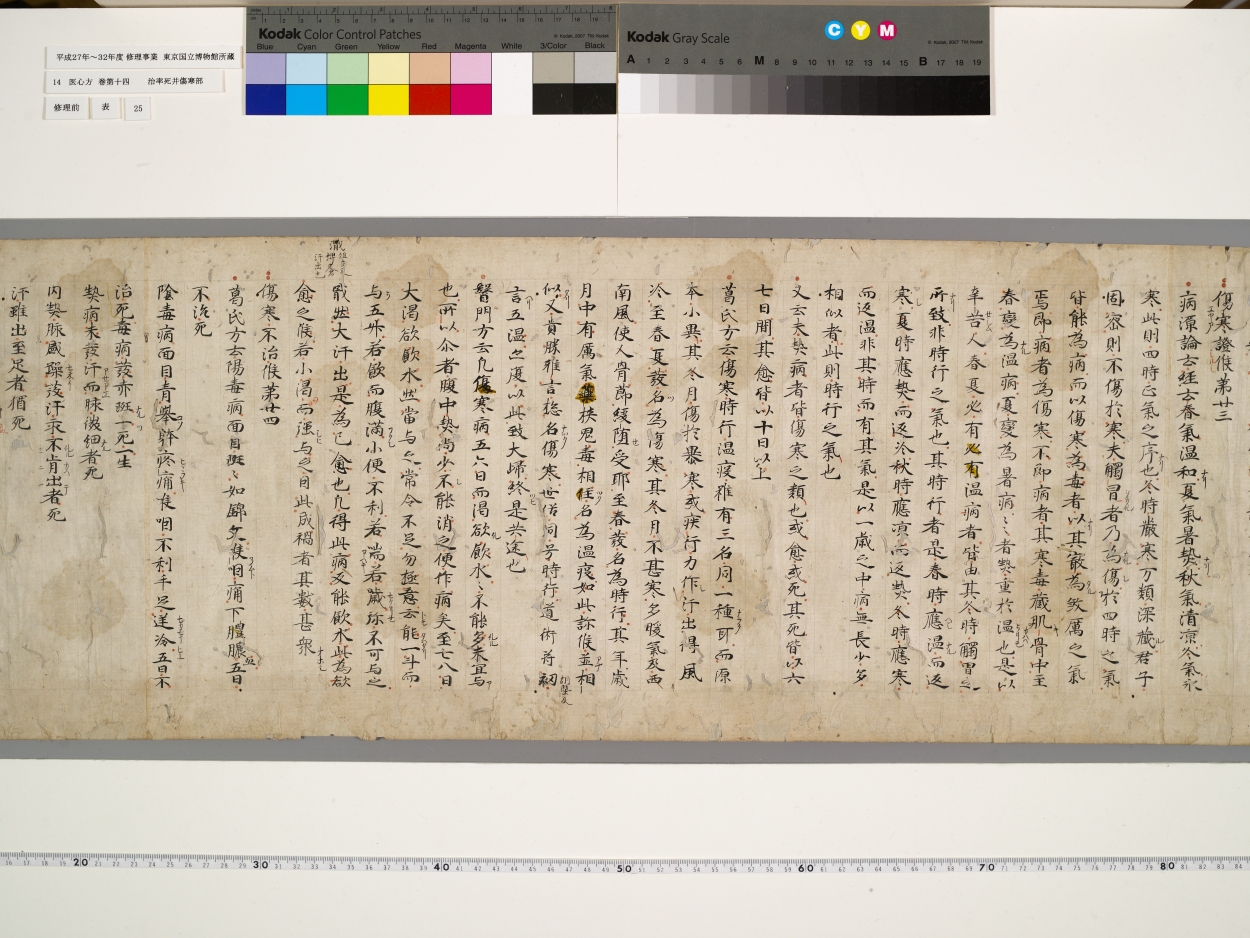 平成27年～32年度 修理事業 東京国立博物館所蔵
14 医心方 巻第十四 治卒死并傷寒部
修理前 表 25
Kodak Color Control Patches
Blue Cyan Green Yellow Red Magenta White 3/Color Black
Kodak Gray Scale
C Y M
A 1 2 3 4 5 6 M 8 9 10 11 12 13 14 15 B 17 18 19
傷寒證候第廿三
病源論云経云春氣温和夏氣暑熱秋氣清凉冬氣氷
寒此則四時正氣之序也冬時嚴寒万類深蔵君子
固密則不傷於寒夫觸冒者乃為傷於四時之氣
皆能為病而以傷寒為毒者以其最為煞厲之氣
焉即病者為傷寒不即病者其寒毒蔵肌骨中至
春變為温病夏變為暑病々者熱重於温也是以
辛苦人春夏必有必有温病者皆由其冬時觸冒之
所致非時行之氣也其時行者是春時應温而返
寒夏時應熱而返冷秋時應凉而返熱冬時應寒
而返温非其時而有其氣是以一歳之中病無長少多
相似者此則時行之氣也
又云夫熱病者皆傷寒之類也或愈或死其死皆以六
七日間其愈皆以十日以上
葛氏方云傷寒時行温疫雖有三名同一種耳而源
本小異其冬月傷於暴寒或疾行力作汗出得風
冷至春夏發名為傷寒其冬月不甚寒多暖氣及西
南風使人骨節緩堕受耶至春發名為時行其年歳
月中有厲氣 挟鬼毒相住名為温疫如此診候並相
似又貴勝雅言総名傷寒世俗同号時行道術符刻
言五温之復以此致大歸終是共途也
醫門方云凡傷寒病五六日而渇欲飲水々不能多未宜与
也所以尒者腹中熱尚少不能消之便作病矣至七八日
大渇欲飲水然當与之常令不足勿極意云能一斗而
与五升若飲而腹満小便不利若喘若歳 不可与之
戰然大汗出是為已愈也凡得此病又能飲水此為欲
愈之候若小渇而強与之因此成禍者其数甚衆
傷寒不治候第廿四
葛氏方云陽毒病面目斑々如錦文喉咽痛下膿膿五日
不治死
陰毒病面目青舉躰疼痛喉咽不利手足逆冷五日不
治死毒病發亦斑一死一生
熱病未發汗而脉微細者死
内熱脉盛躁發汗永不肯出者死
汗雖出至足者猶死
20 30 40 50 60 70 80